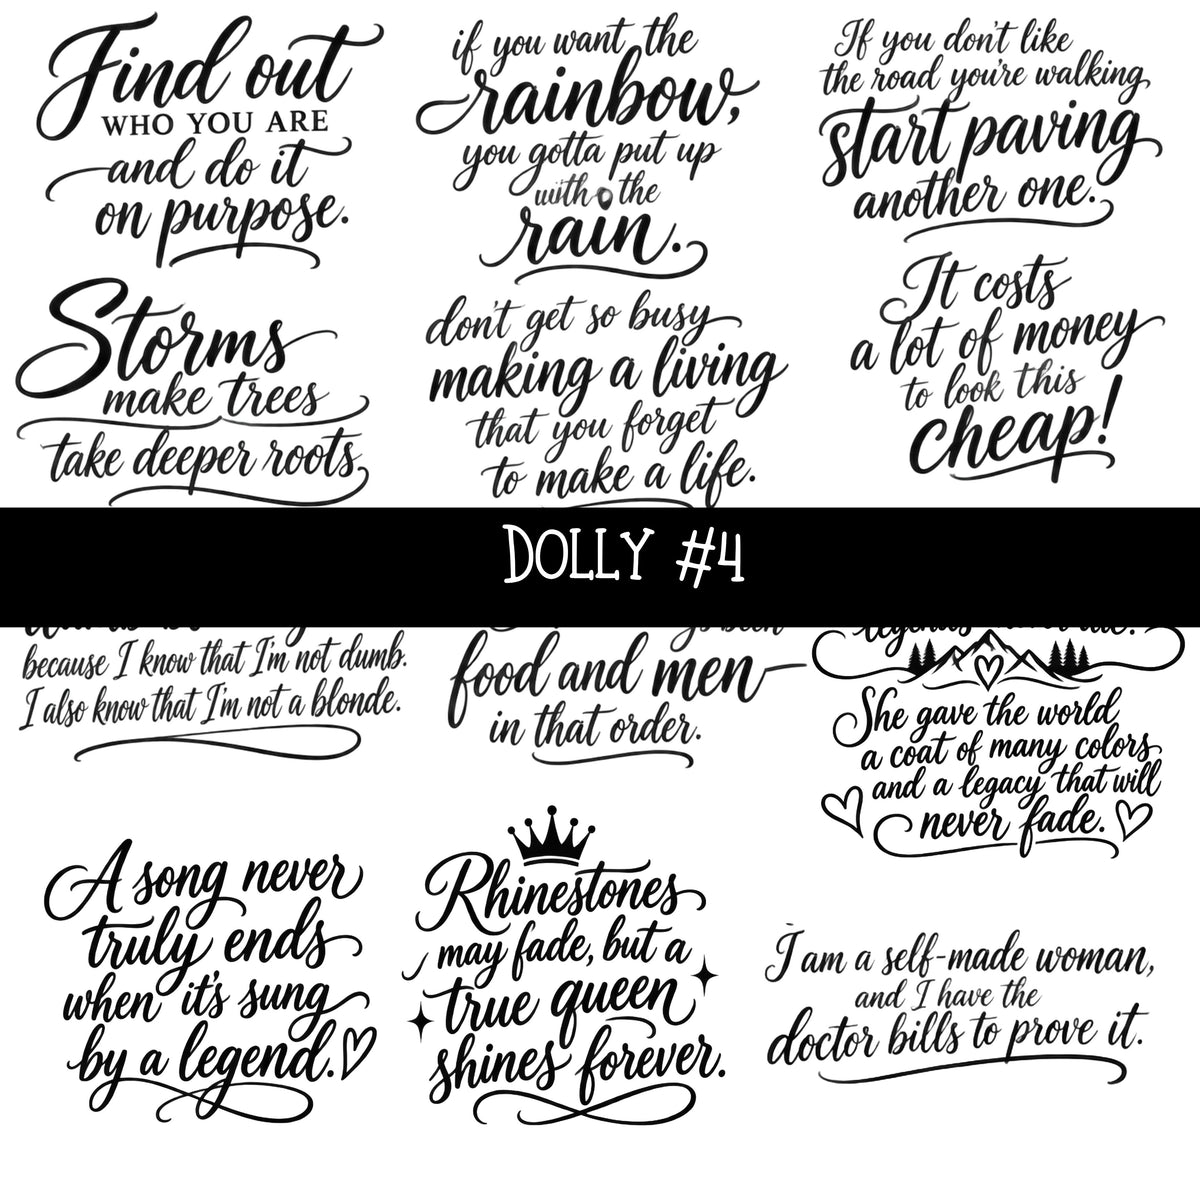 Find out
WHO YOU ARE
and do it
on purpose.
if you want the
rainbow,
you gotta put up
with the
rain.
If you don't like
the road you're walking,
start paving
another one.
Storms
make trees
take deeper roots,
don't get so busy
making a living
that you forget
to make a life.
It costs
a lot of money
to look this
cheap!
DOLLY #4
because I know that I'm not dumb.
I also know that I'm not a blonde.
been
food and men
in that order.
legends never die.
She gave the world
a coat of many colors
and a legacy that will
never fade.
A song never
truly ends
when it's sung
by a legend.
Rhinestones
may fade, but a
true queen
shines forever.
I am a self-made woman,
and I have the
doctor bills to prove it.